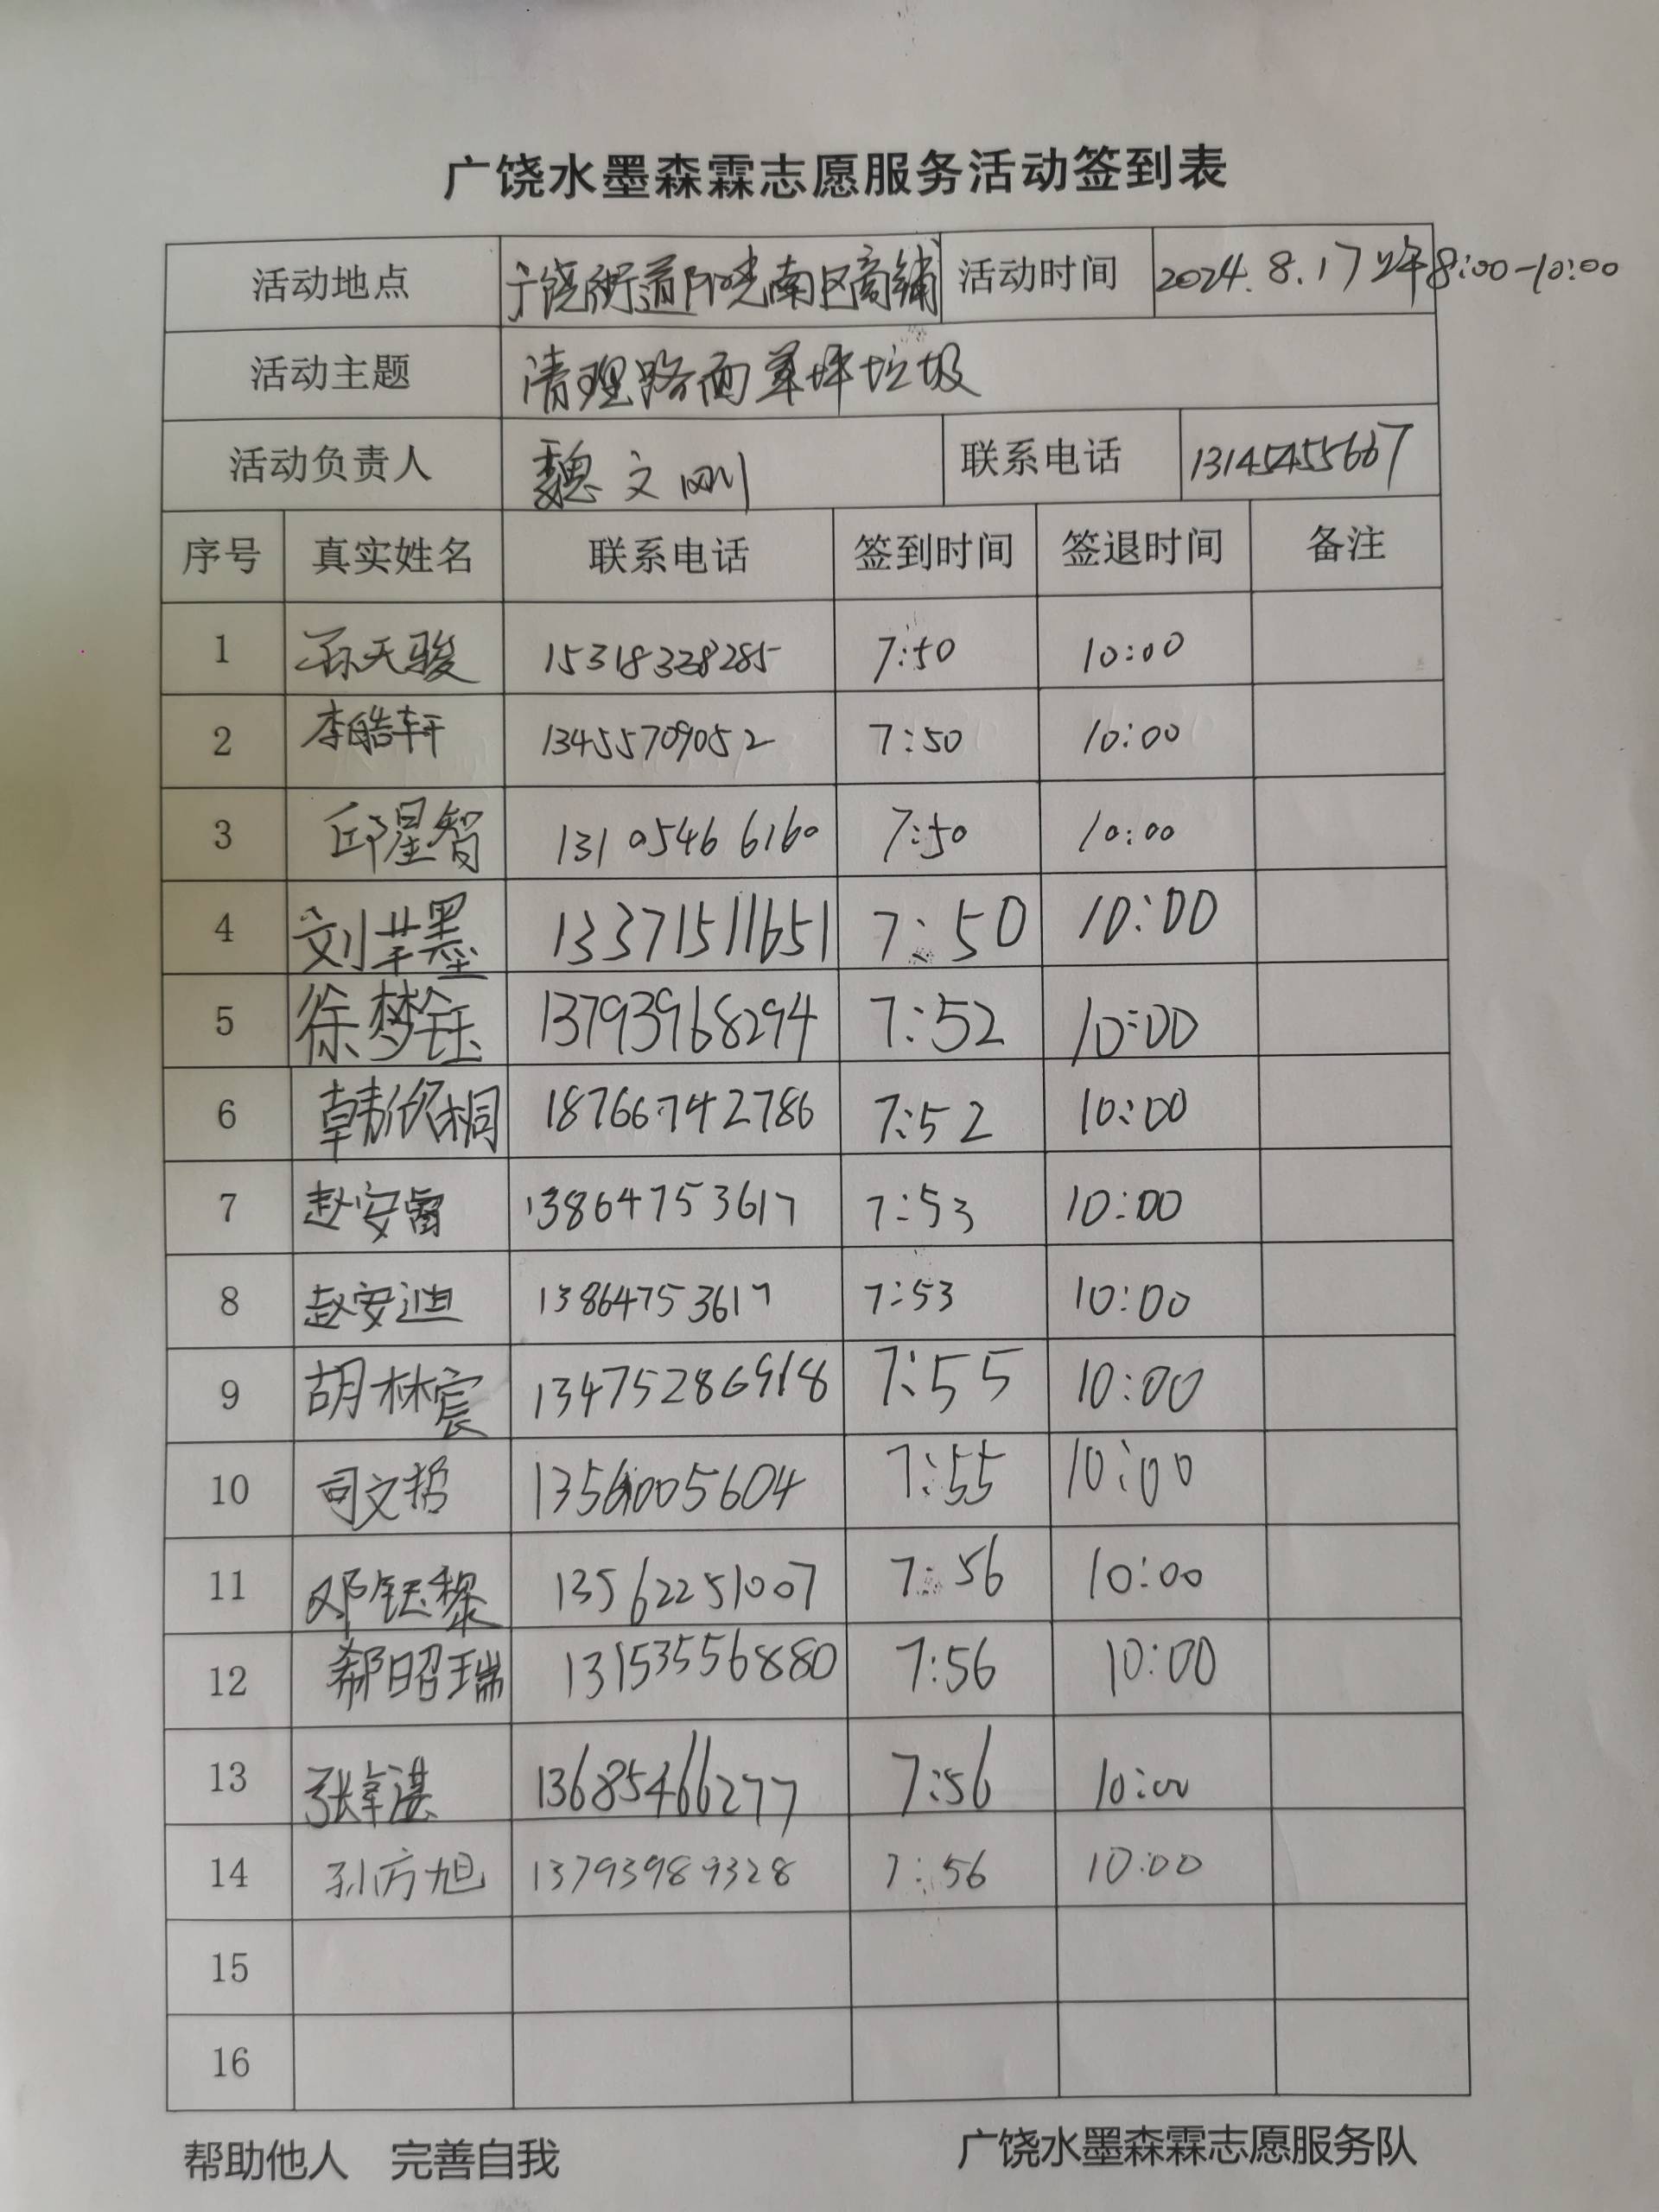 广饶水墨森霖志愿服务活动签到表
活动地点 广饶街道阳光南区商铺 活动时间 2024.8.17上午8:00-10:00
活动主题 清理路面草坪垃圾
活动负责人 魏文刚 联系电话 13145455667
序号 真实姓名 联系电话 签到时间 签退时间 备注
1 孙天骏 15318328285 7:50 10:00
2 李皓轩 13455709052 7:50 10:00
3 邱星智 13105466160 7:50 10:00
4 刘芊墨 13371511651 7:50 10:00
5 徐梦钰 13793968294 7:52 10:00
6 韩欣桐 18766742786 7:52 10:00
7 赵安睿 13864753617 7:53 10:00
8 赵安迪 13864753617 7:53 10:00
9 胡林宸 13475286918 7:55 10:00
10 司文 7:55 10:00
11 邓钰黎 13562251007 7:56 10:00
12 郗昭瑞 13153556880 7:56 10:00
13 张湛 13685466277 7:56 10:00
14 孙方旭 13793989328 7:56 10:00
15
16
帮助他人 完善自我 广饶水墨森霖志愿服务队